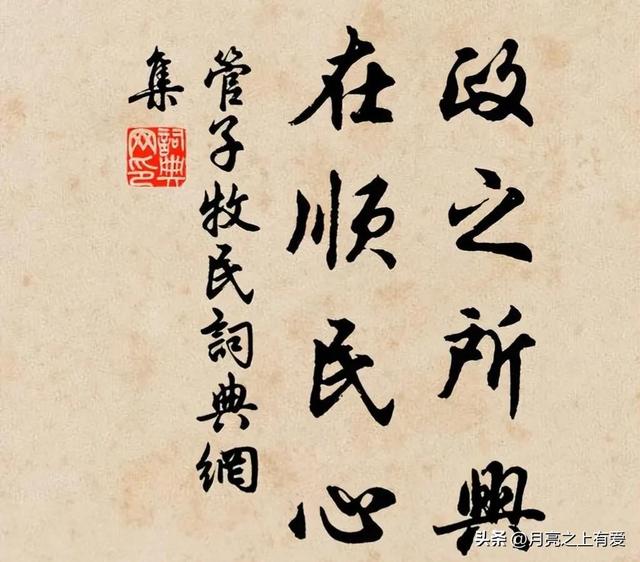 政之所興
在順民心
管子牧民詞典網
集
詞典
网印
头条 @月亮之上有爱